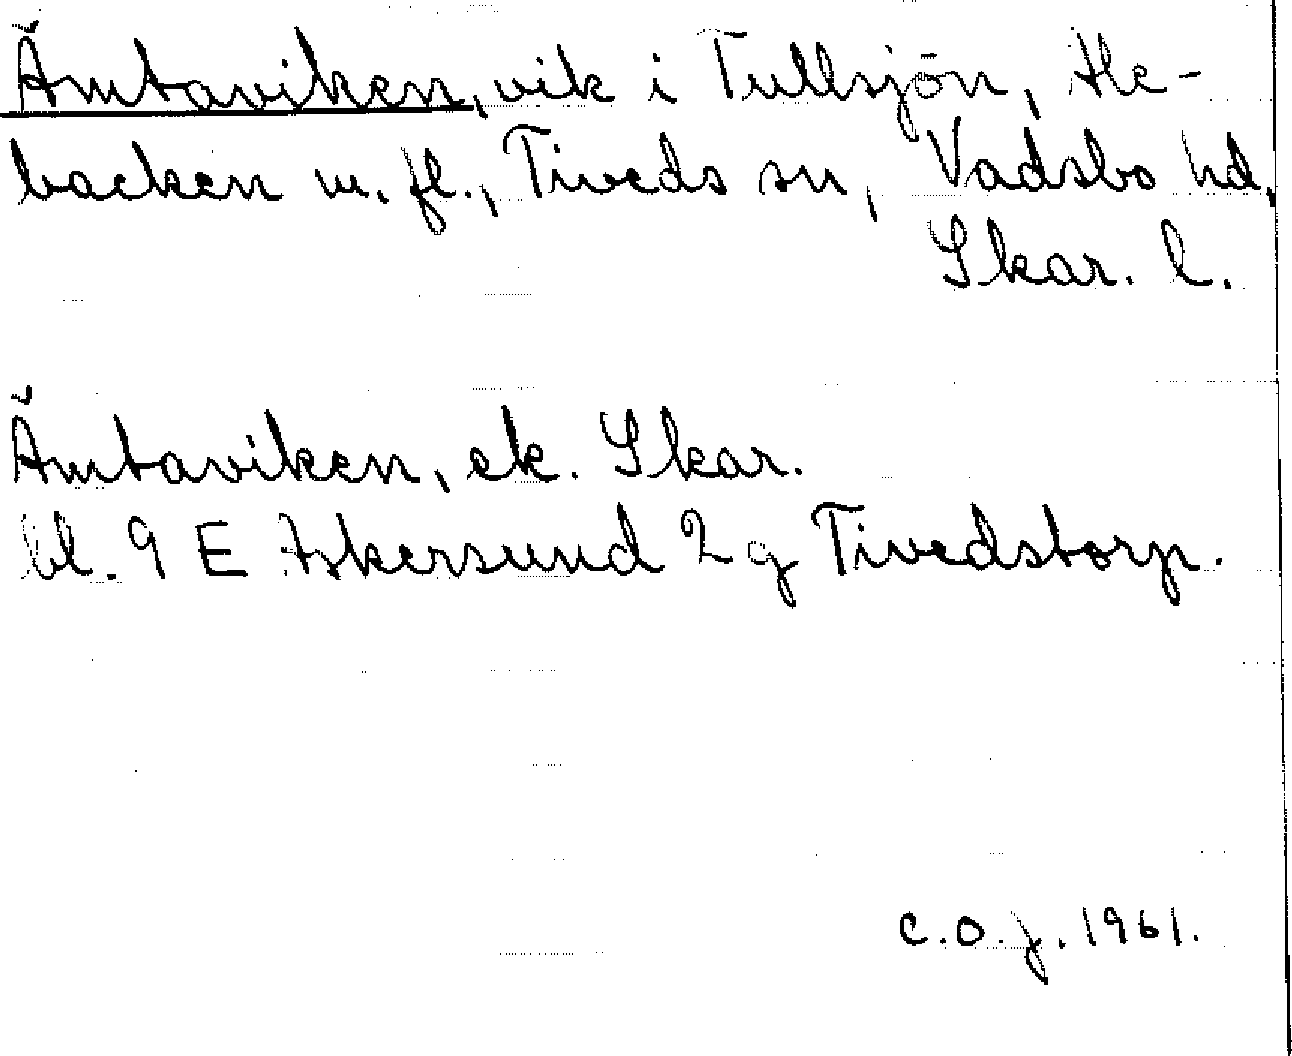 Ämtaviken, vik i Tullsjön, Ale-
backen m. fl., Tiveds sn, Vadsbo hd,
Skar. l.
Ämtaviken, ek. Skar.
bl. 9 E Askersund 2 g Tivedstorp.
C.O.J. 1961.